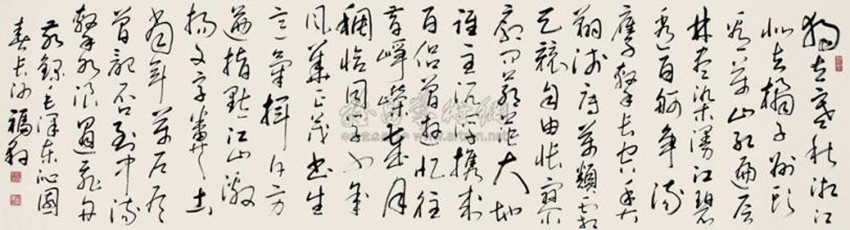 獨立寒秋湘江
北去橘子洲頭
看萬山红遍层
林尽染漫江碧
透百舸争流
鹰擊长空鱼
翔浅底萬類霜
天競自由悵寥
廓问苍茫大地
谁主沉浮携来
百侣曾遊忆往
昔峥嵘歲月
稠恰同学少年
风華正茂书生
意氣挥斥方
遒指點江山激
揚文字粪土
當年萬户侯
曾記否到中流
擊水浪遏飛舟
錄毛泽东沁園
春长沙 福